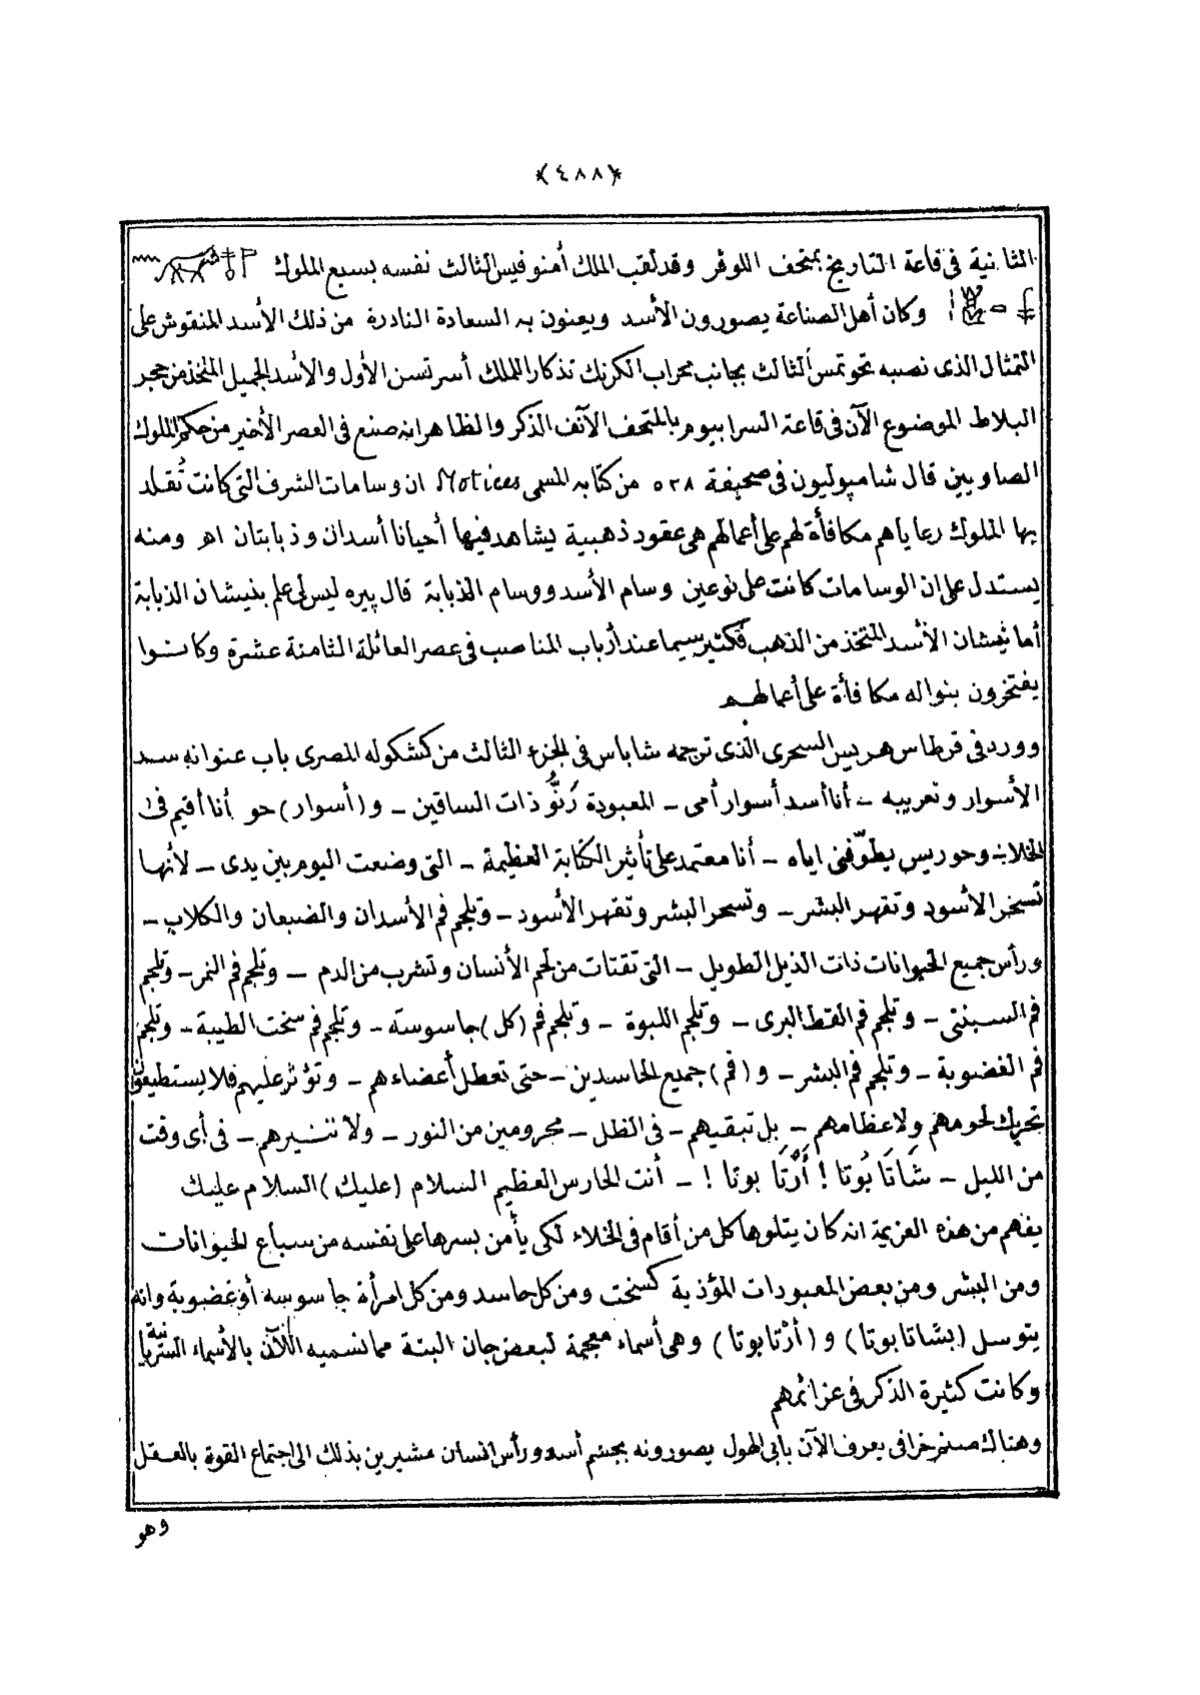 ﴿٤٨٨﴾
الثانية فى قاعة التاريخ بمتحف اللوڤر وقد لقب الملك أمنوفيس الثالث نفسه بسبع الملوك
وكان أهل الصناعة يصورون الأسد ويعنون به السعادة النادرة من ذلك الأسد المنقوش على
التمثال الذى نصبه تحوتمس الثالث بجانب محراب الكرنك تذكارا للملك أسرتسن الأول والأسد الجميل المتخذ من حجر
البلاط الموضوع الآن فى قاعة السرابيوم بالمتحف الآنف الذكر والظاهر انه صنع فى العصر الأخير من حكم الملوك
الصاويين قال شامپوليون فى صحيفة ٥٢٨ من كتابه المسمى Notices ان وسامات الشرف التى كانت تُقلد
بها الملوك رعاياهم مكافأة لهم على أعمالهم هى عقود ذهبية يشاهد فيها أحيانا أسدان وذبابتان اهـ ومنه
يستدل على ان الوسامات كانت على نوعين وسام الأسد ووسام الذبابة قال پيره ليس لى علم بنيشان الذبابة
أما نيشان الأسد المتخذ من الذهب فكثير سيما عند أرباب المناصب فى عصر العائلة الثامنة عشرة وكانوا
يفتخرون بنواله مكافأة على أعمالهم
وورد فى قرطاس هريس السحرى الذى ترجمه شاباس فى الجزء الثالث من كشكوله المصرى باب عنوانه سد
الأسوار وتعريبه – أنا أسد أسوار أمى – المعبودة رَنُّو ذات الساقين – و(أسوار) حو أنا أقيم فى
الخلاء وحوريس يطوّفنى اياه – أنا معتمد على تأثير الكتابة العظيمة – التى وضعت اليوم بين يدى – لأنها
تسخر الأسود وتقهر البشر – وتسحر البشر وتقهر الأسود – وتلجم فم الأسدان والضبعان والكلاب –
ورأس جميع الحيوانات ذات الذيل الطويل – التى تقتات من لحم الأنسان وتشرب من الدم – وتلجم فم النمر – وتلجم
فم السبنتى – وتلجم فم القط البرى – وتلجم اللبوة – وتلجم فم (كل) جاسوسته – وتلجم فم سخت الطيبة – وتلجم
فم الغضوبة – وتلجم فم البشر – و(فم) جميع الحاسدين – حتى تعطل أعضاءهم – وتؤثر عليهم فلا يستطيعون
تحريك لحومهم ولا عظامهم – بل تبقيهم – فى الظل – محرومين من النور – ولا تنيرهم – فى أى وقت
من الليل – شَاتَا بُوتا ! أَرْتَا بوتا ! – أنت الحارس العظيم السلام (عليك) السلام عليك
يفهم من هذه العزيمة انه كان يتلوها كل من أقام فى الخلاء لكى يأمن بسرها على نفسه من سباع الحيوانات
ومن البشر ومن بعض المعبودات المؤذية كسخت ومن كل حاسد ومن كل امرأة جاسوسه أو غضوبة وانه
يتوسل (بشاتابوتا) و (أرْتابوتا) وهى أسماء معجمة لبعض جان البتة مما نسميه الآن بالأسماء السريانية
وكانت كثيرة الذكر فى عزائمهم
وهناك صنم خرافى يعرف الآن بأبى الهول يصورونه بجسم أسد ورأس انسان مشيرين بذلك الى اجتماع القوة بالعقل
وهو